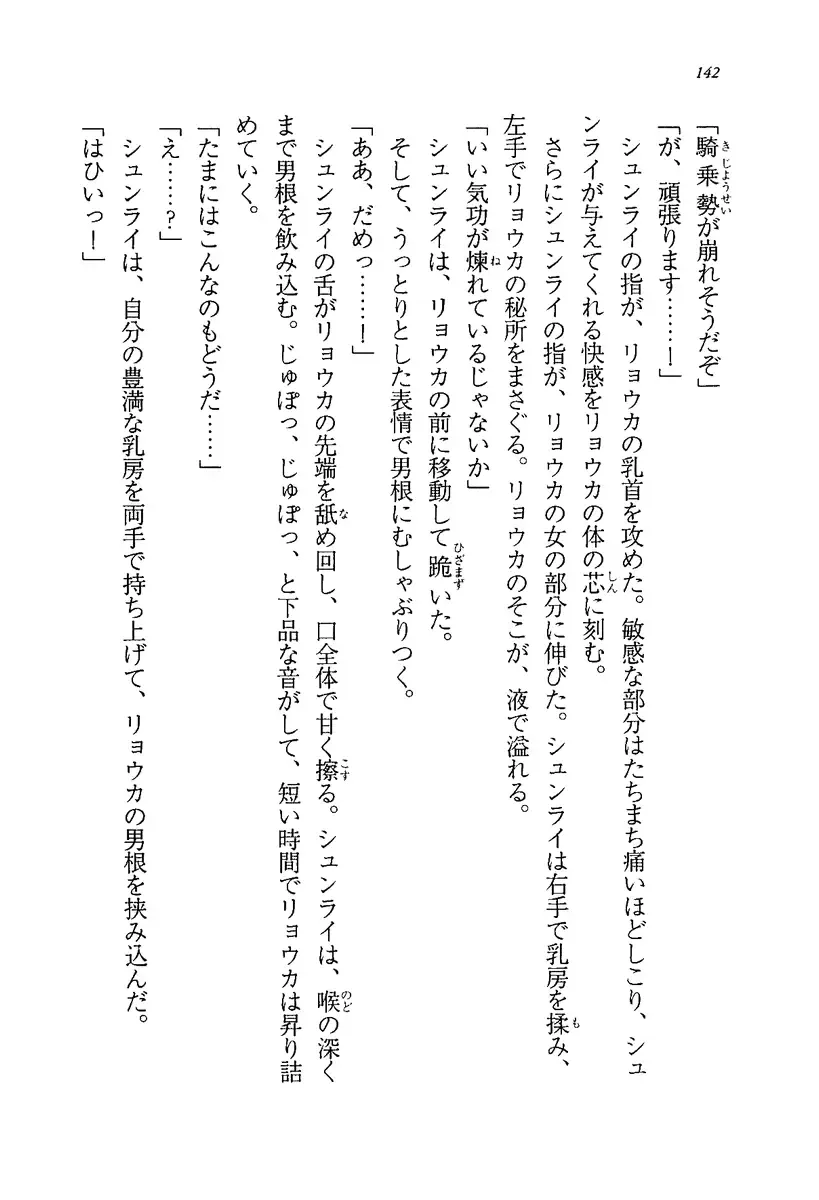 142
「騎乗勢が崩れそうだぞ」
「が、頑張ります……！」
　シュンライの指が、リョウカの乳首を攻めた。敏感な部分はたちまち痛いほどしこり、シュ
ンライが与えてくれる快感をリョウカの体の芯に刻む。
　さらにシュンライの指が、リョウカの女の部分に伸びた。シュンライは右手で乳房を揉み、
左手でリョウカの秘所をまさぐる。リョウカのそこが、液で溢れる。
「いい気功が煉れているじゃないか」
　シュンライは、リョウカの前に移動して跪いた。
　そして、うっとりとした表情で男根にむしゃぶりつく。
「ああ、だめっ……！」
　シュンライの舌がリョウカの先端を舐め回し、口全体で甘く擦る。シュンライは、喉の深く
まで男根を飲み込む。じゅぽっ、じゅぽっ、と下品な音がして、短い時間でリョウカは昇り詰
めていく。
「たまにはこんなのもどうだ……」
「え……？」
　シュンライは、自分の豊満な乳房を両手で持ち上げて、リョウカの男根を挟み込んだ。
「はひいっ！」